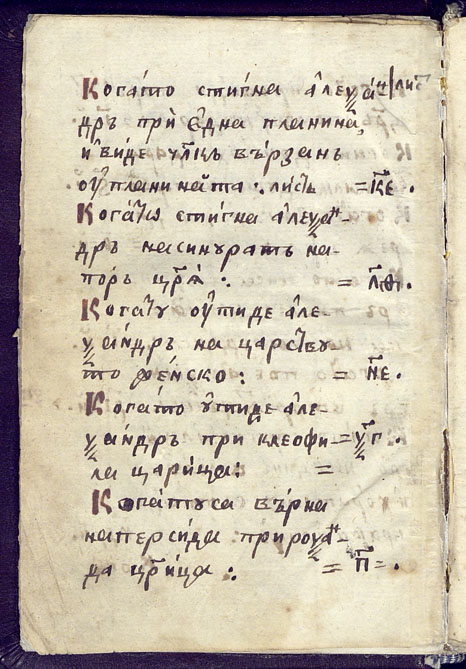 Когато стигна алеѯан҇ лис҇
дръ при една планина,
и виде чл҃къ вързанъ
оу планината : листъ =к҃е .
Когатѡ стигна алеѯан҇-
дръ на синуратъ на
поръ цр҃ѧ : = л҃ѳ .
Когату оутиде але-
ѯандръ на царству
то фенско : = н҃е .
Когато утиде але-
ѯандръ при клеофи-=ѯ҃г .
ла царица: =
Когатуса върна
на персида : при роѯан҇-
да цр҃ица : = п҃= .